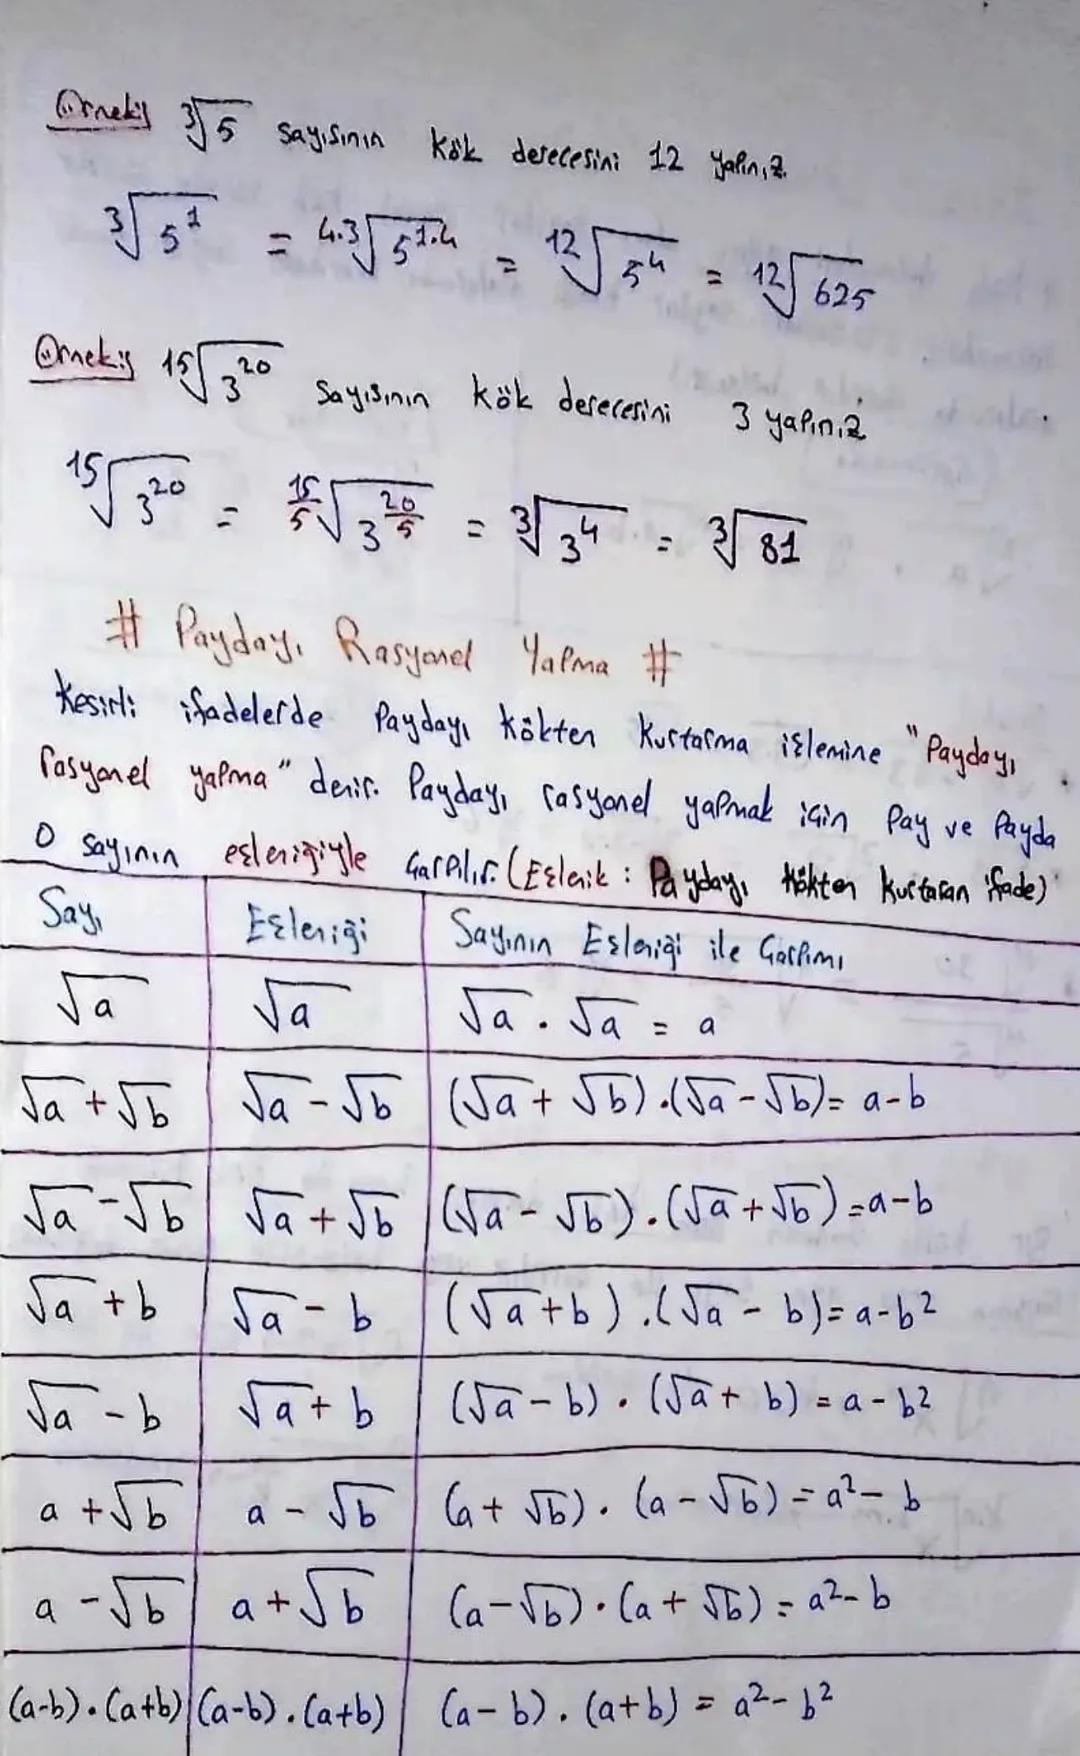 Örnek; ³√5 sayısının kök derecesini 12 yapınız.
³√5¹ = ⁴·³√5¹·⁴ = ¹²√5⁴ = ¹²√625
Örnek; ¹⁵√3²⁰ sayısının kök derecesini 3 yapınız
¹⁵√3²⁰ = ¹⁵⁄⁵√3^(20/5) = ³√3⁴ = ³√81
# Paydayı Rasyonel Yapma #
Kesirli ifadelerde Paydayı kökten kurtarma işlemine "Paydayı
rasyonel yapma" denir. Paydayı rasyonel yapmak için Pay ve Payda
o sayının eşleniğiyle çarpılır. (Eşlenik : Paydayı kökten kurtaran ifade)
Sayı Eşleniği Sayının Eşleniği ile Çarpımı
√a √a √a . √a = a
√a + √b √a - √b (√a + √b).(√a - √b) = a-b
√a - √b √a + √b (√a - √b).(√a + √b) = a-b
√a + b √a - b (√a + b).(√a - b) = a-b²
√a - b √a + b (√a - b).(√a + b) = a-b²
a + √b a - √b (a + √b).(a - √b) = a²-b
a - √b a + √b (a - √b).(a + √b) = a²-b
(a-b).(a+b) (a-b).(a+b) (a-b).(a+b) = a²-b²